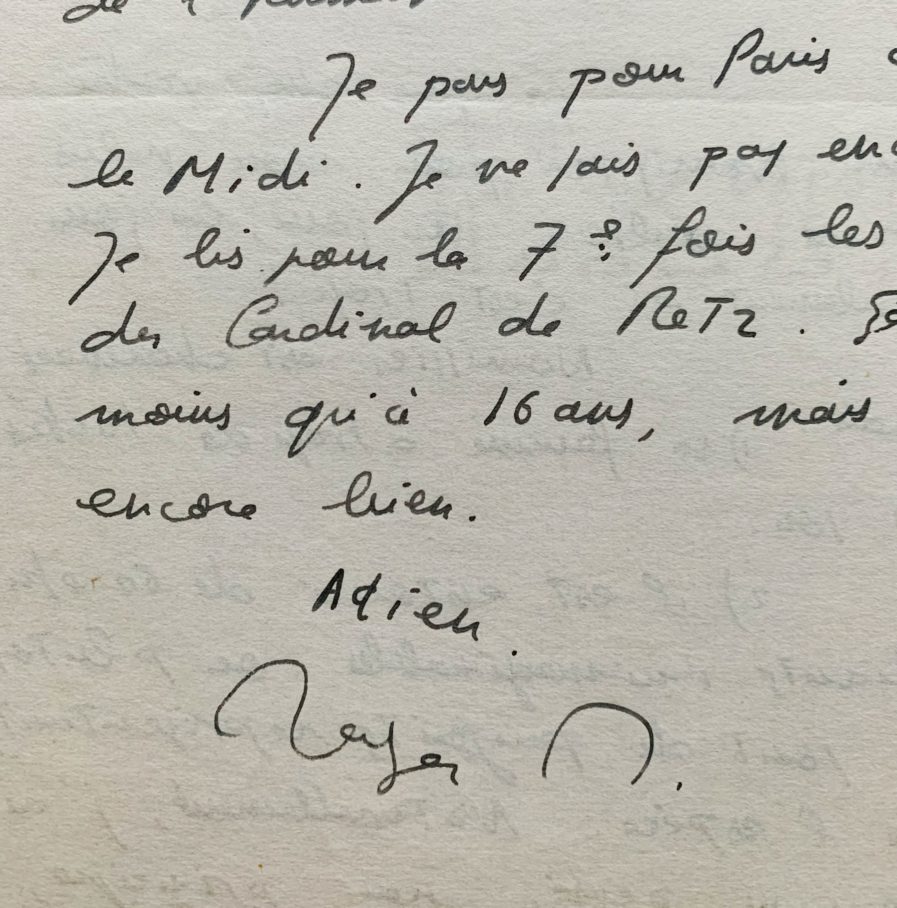 de l'
Je pars pour Paris
le Midi. Je ne sais pas enc
Je lis pour la 7e fois les
du Cardinal de Retz.
moins qu'à 16 ans, mais
encore bien.
Adieu.
Roger N.